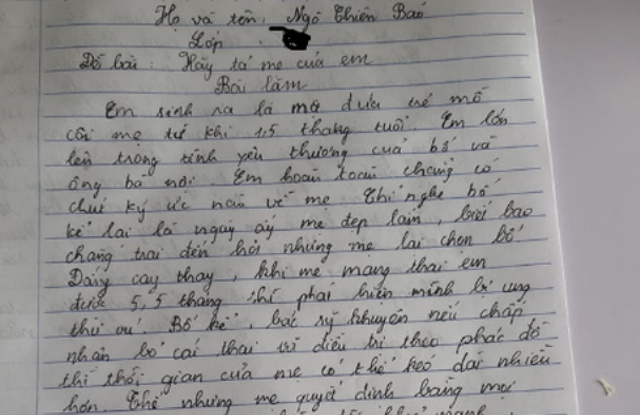 Họ và tên: Ngô Thiên Bảo
Lớp
Đề bài: Hãy tả mẹ của em
Bài làm
Em sinh ra là một đứa trẻ mồ
côi mẹ từ khi 1,5 tháng tuổi. Em lớn
lên trong tình yêu thương của bố và
ông bà nội. Em hoàn toàn chẳng có
chút ký ức nào về mẹ. Chỉ nghe bố
kể lại là ngày ấy mẹ đẹp lắm, biết bao
chàng trai đến hỏi nhưng mẹ lại chọn bố.
Đắng cay thay, khi mẹ mang thai em
được 5,5 tháng thì phát hiện mình bị ung
thư vú. Bố kể, bác sỹ khuyên nếu chấp
nhận bỏ cái thai và điều trị theo phác đồ
thì thời gian của mẹ có thể kéo dài nhiều
hơn. Thế nhưng mẹ quyết định bằng mọi